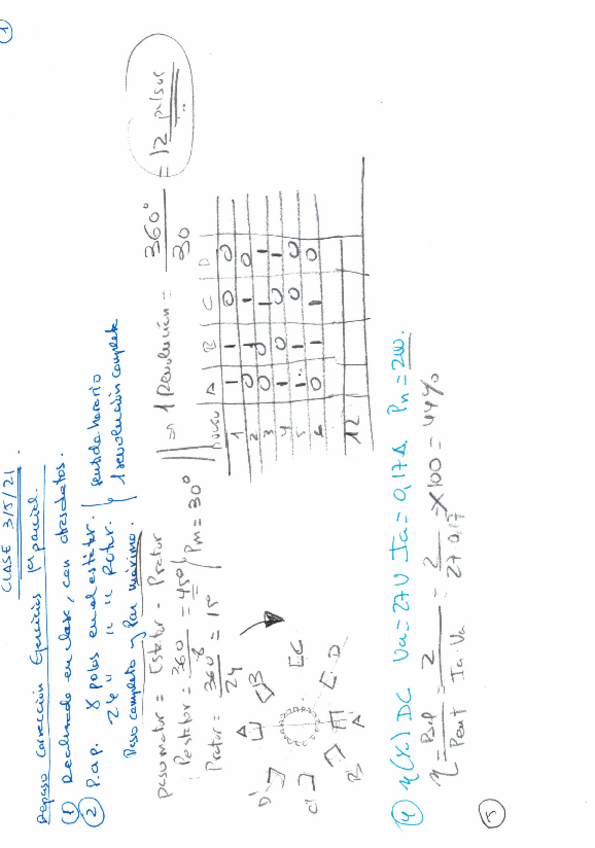 ①
CLASE 3/5/21.
Repaso Corrección Ejercicios 1er parcial.
① Realizado en clase, con otros datos.
② P.a.p. 8 polos en el estator. } sentido horario
24 " " " Rotor. } 1 revolución completa
Paso completo y Par máximo.
Paso motor = Estator - Protor
Pestator = 360/8 = 45° / Pm = 30°
Protor = 360°/24 = 15°
⇒ 1 Revolución = 360°/30 = 12 pulsos
Pulso A B C D
1 1 1 0 0
2 0 1 1 0
3 0 0 1 1
4 1 0 0 1
5 1 1 0 0
6 0 1 1 0
12
A B C D
A' B' C' D'
④ η(%) DC Va = 27V Ia = 0,17A Pn = 2W.
η = Psal/Pent = 2/Ia Va = 2/27 0,17 × 100 = 44%
⑤